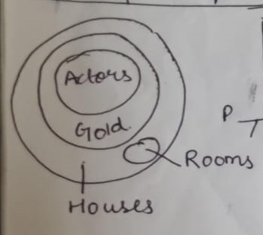 Actors
Gold
Rooms
Houses
P
T